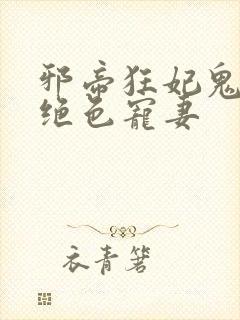 邪帝狂妃鬼
绝色寵妻
衣青箬